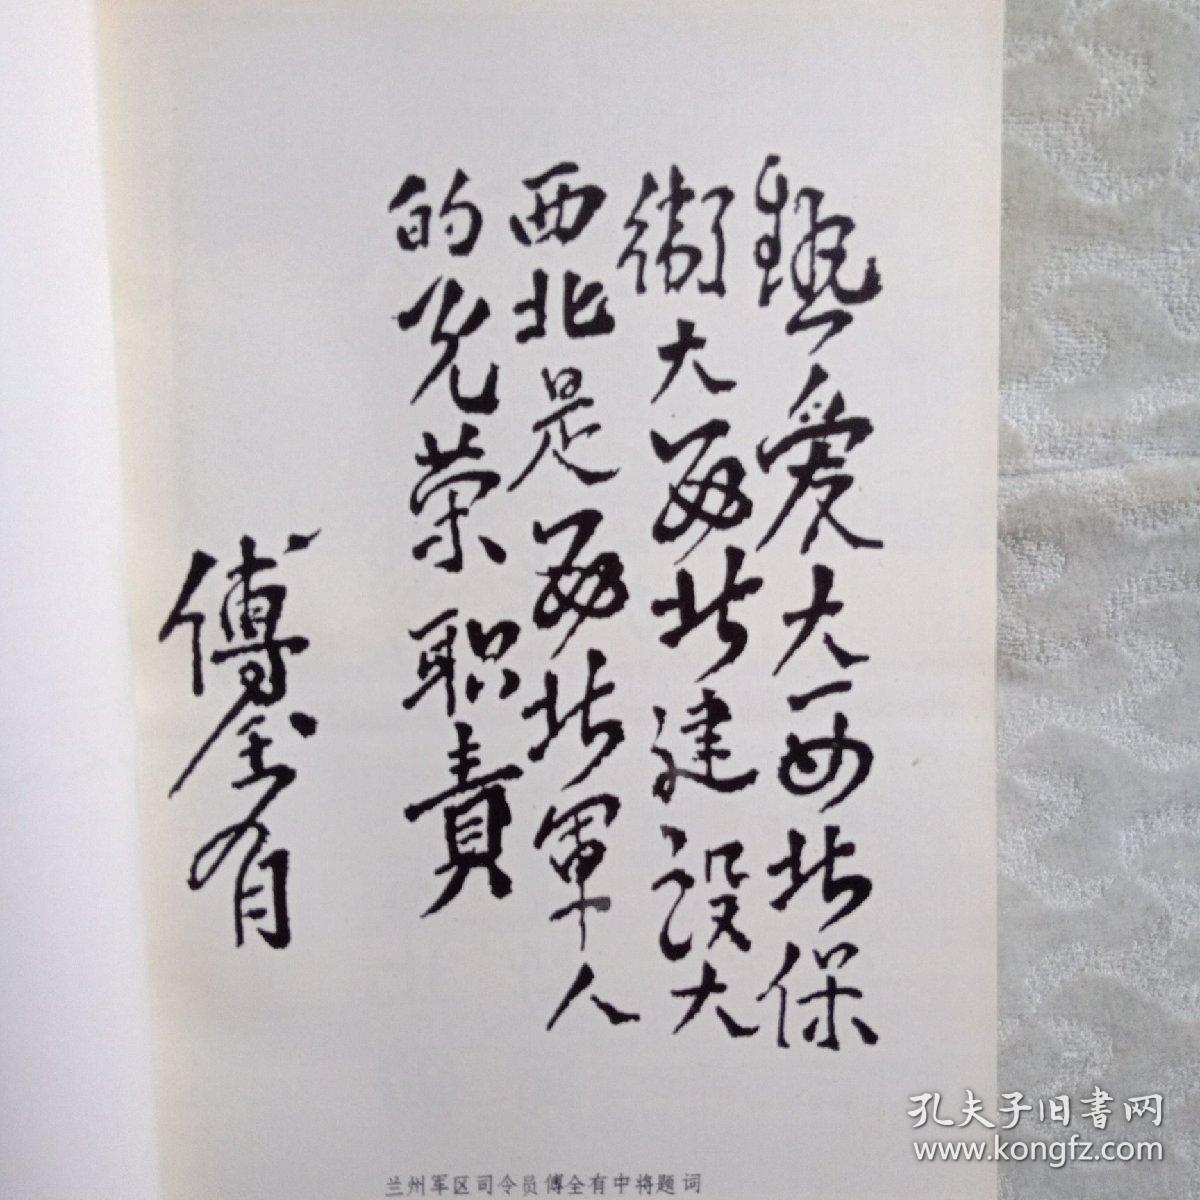 熱爱大西北保
衛大西北建設大
西北是西北軍人
的光荣职責
傅全有
兰州军区司令员傅全有中将题词
孔夫子旧書网
www.kongfz.com